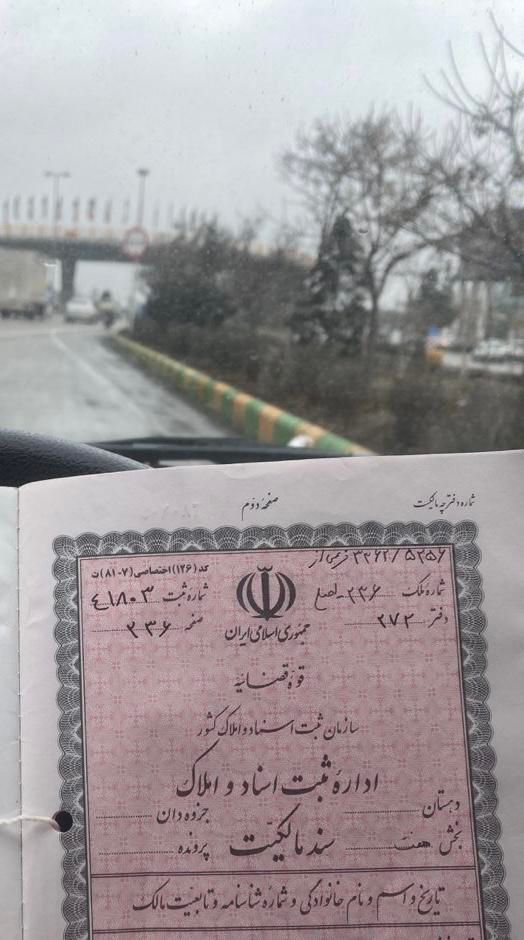 شماره دفترچه مالکیت
صفحهٔ دوم
۳۲۶۲/۵۲۵۶ فرعی از
شماره ملک ۲۳۶-اصلی
دفتر ۲۷۲
کد (۱۲۶) اختصاصی (۷-۸۱) ت
شماره ثبت ۴۱۸۰۳
صفحه ۲۳۶
جمهوری اسلامی ایران
قوهٔ قضائیه
سازمان ثبت اسناد و املاک کشور
ادارهٔ ثبت اسناد و املاک
دهستان
جزوه دان
بخش هفت
سند مالکیت
پرونده
تاریخ و اسم و نام خانوادگی و شماره شناسنامه و تابعیت مالک